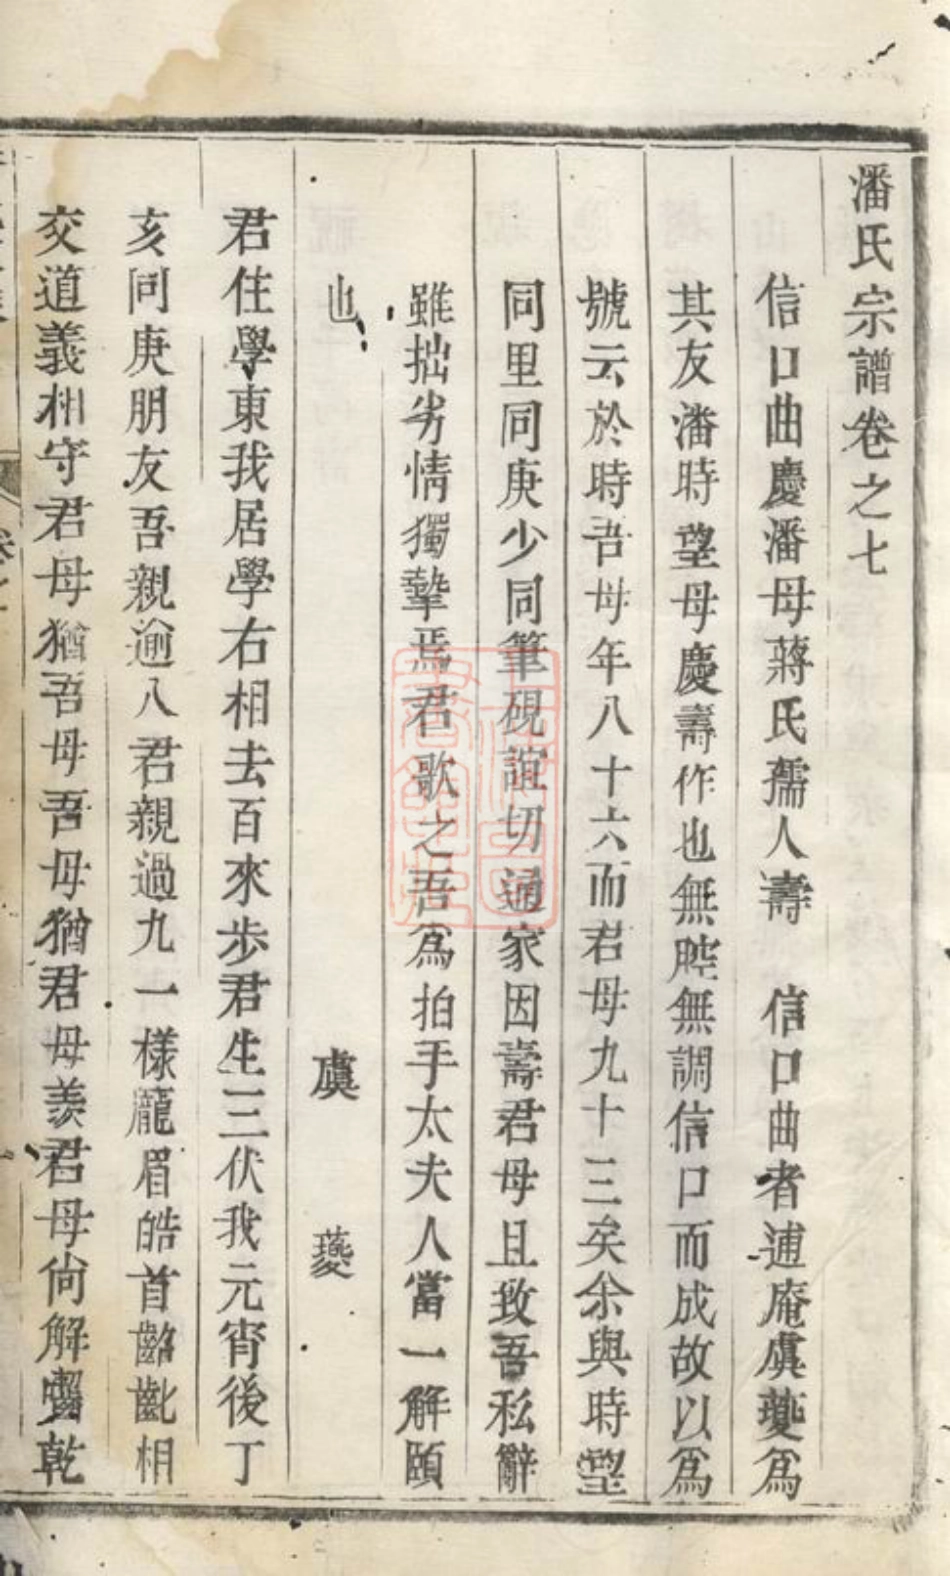 潘氏宗譜卷之七
信口曲慶潘母蔣氏孺人壽　信口曲者逋庵虞夔爲
其友潘時望母慶壽作也無腔無調信口而成故以爲
號云於時吾母年八十六而君母九十三矣余與時望
同里同庚少同筆硯誼切通家因壽君母且致吾私辭
雖拙劣情獨摯焉君歌之吾爲拍手太夫人當一解頤
也
虞　夔
君住學東我居學右相去百來步君生三伏我元宵後丁
亥同庚朋友吾親逾八君親過九一樣龐眉皓首齠齔相
交道義相守君母猶吾母吾母猶君母羨君母尙解齧乾